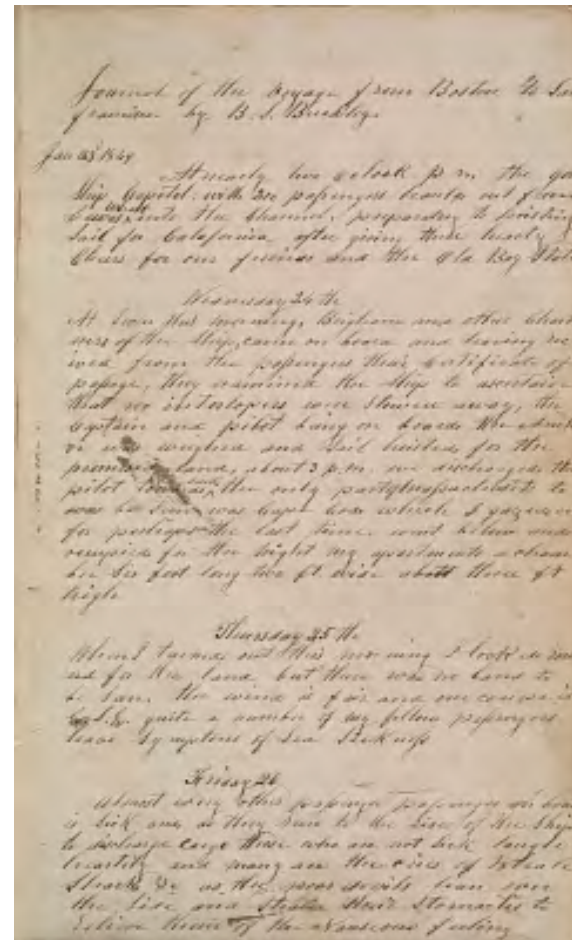 Journal of the Voyage from Boston to San
francisco by B. S. Buckley
Jan 23d 1849
At nearly two oclock p. m. the
Ship Capitol with 200 passengers hauled out from
into the Channel, preparing to
Sail for California after giving three hearty
Cheers for our friends and the Old Bay State
Wednesday 24 th
At Seven this morning, Brigham and other
ners of the Ship, came on board and having rec
ived from the passengers their Certificate of
passage, they examined the Ship to ascertain
that no interlopers were Stowed away, the
Captain and pilot being on board the
or was weighed and Sail hoisted for the
promised land, about 3 p.m. we discharged the
pilot the only part of Massachusetts to
be Seen was Cape Cod which I gazed on
for perhaps the last time. went below and
occupied for the night my apartments a cham
ber Six feet long two ft. wide about three ft
high
Thursday 25 th
When I turned out this morning I look
ed for the land but there was no land to
be Seen. the wind is fair and our course is
E.S.E. quite a number of my fellow passengers
have Symptoms of Sea Sickness
Friday 26
Almost every other passenger on boa
is Sick and as they run to the Side of the Ship
to discharge cargo those who are not Sick laugh
heartily and many are the cries of
&c as the poor devils lean over
the Side and their Stomachs to
relieve them of the nauseous feeling